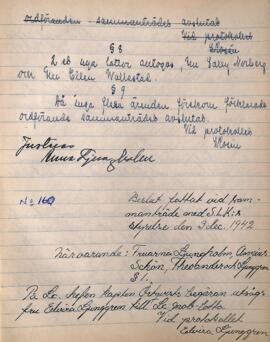 ordföranden sammanträdet avslutat.
Vid protokollet
§ 8
2 st nya Lottor antogos, Fru Sally Norberg
och Fru Ellen Wallestad.
§ 9
Då inga flera ärenden förekom förklarade
ordförande sammanträdet avslutat.
Vid protokollet
Justeras
Anna Ljunggholm
No 160
Beslut fattat vid sam-
manträde med S.L.K:s
styrelse den 9 dec. 1942
Närvarande: Fruarna Ljungholm,
Schön, Theander och Ljunggren
§ 1.
På Lk. chefen Kapten begäran utsågs
fru Elvira Ljunggren till Lk. Lotta
Vid protokollet
Elvira Ljunggren